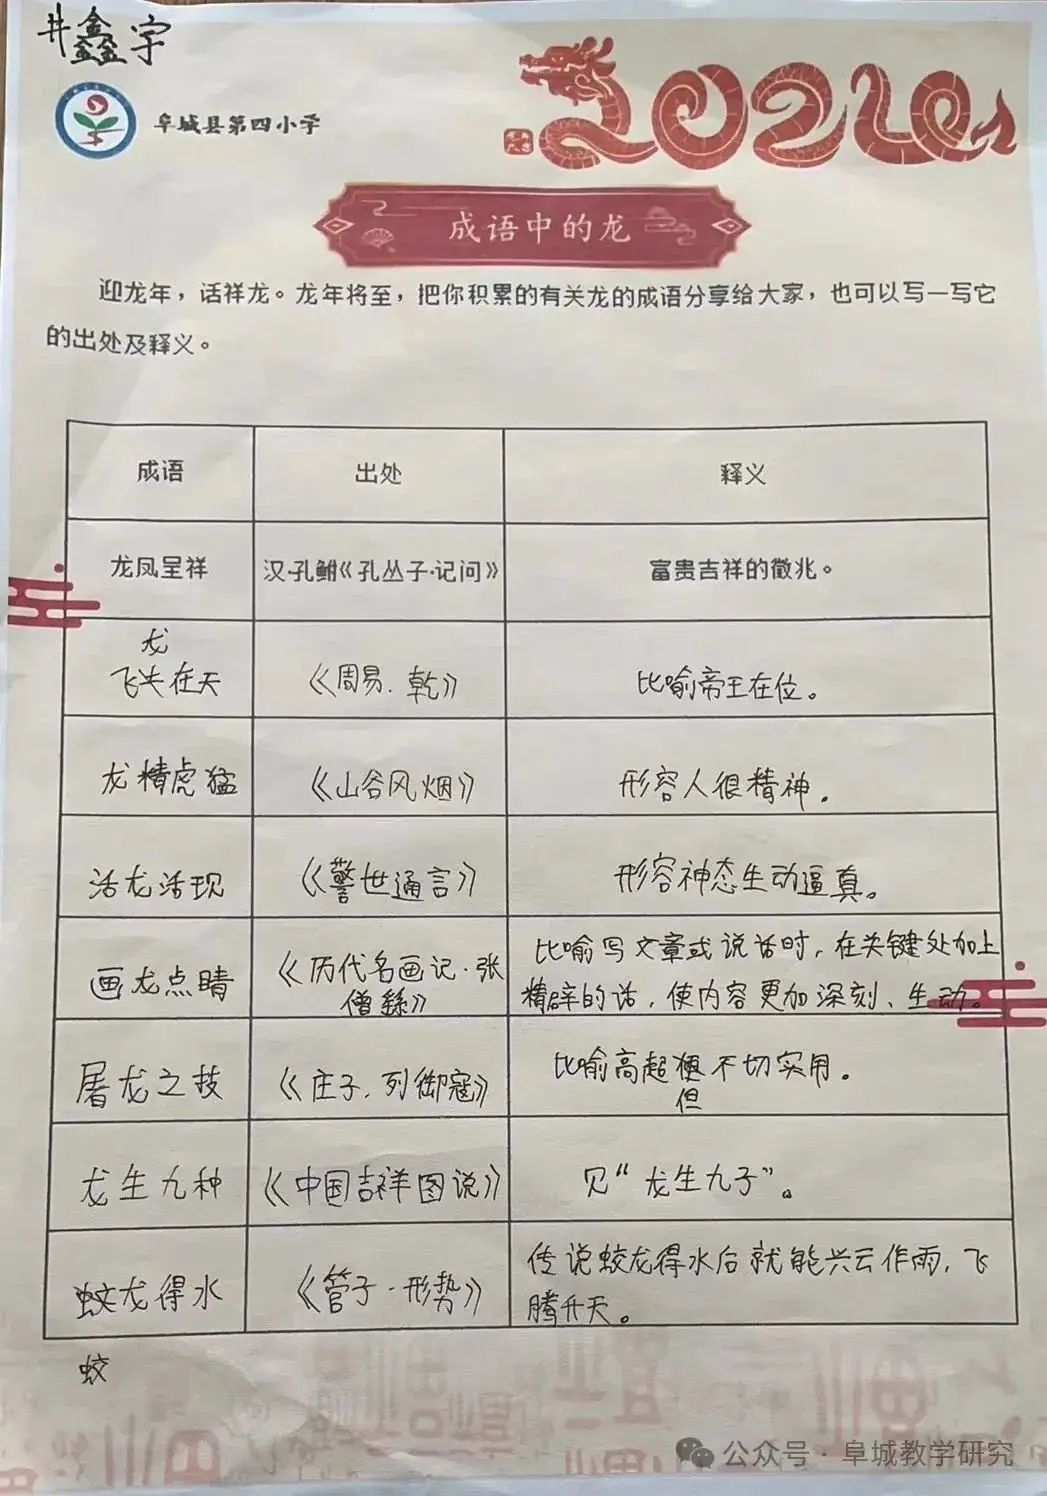 井鑫宇
阜城县第四小学
2024
成语中的龙
迎龙年，话祥龙。龙年将至，把你积累的有关龙的成语分享给大家，也可以写一写它
的出处及释义。
成语 出处 释义
龙凤呈祥 汉·孔鲋《孔丛子·记问》 富贵吉祥的徵兆。
龙
飞在天 《周易.乾》 比喻帝王在位。
龙精虎猛 《山谷风烟》 形容人很精神.
活龙活现 《警世通言》 形容神态生动逼真。
画龙点睛 《历代名画记·张
僧繇》
比喻写文章或说话时,在关键处加上
精辟的话,使内容更加深刻、生动。
屠龙之技 《庄子.列御寇》 比喻高超 不切实用.
但
龙生九种 《中国吉祥图说》 见“龙生九子”。
蛟龙得水 《管子·形势》
传说蛟龙得水后就能兴云作雨,飞
腾升天。
蛟
公众号·阜城教学研究